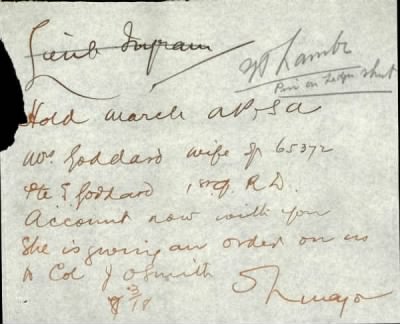 Lieut Ingram
Lambe
Pin on Ledger sheet
Hold March AP & SA
Mrs Goddard wife of 65372
Pte E Goddard R.D.
Account now with you
She is giving an order on us
to Col J O Smith
3/18